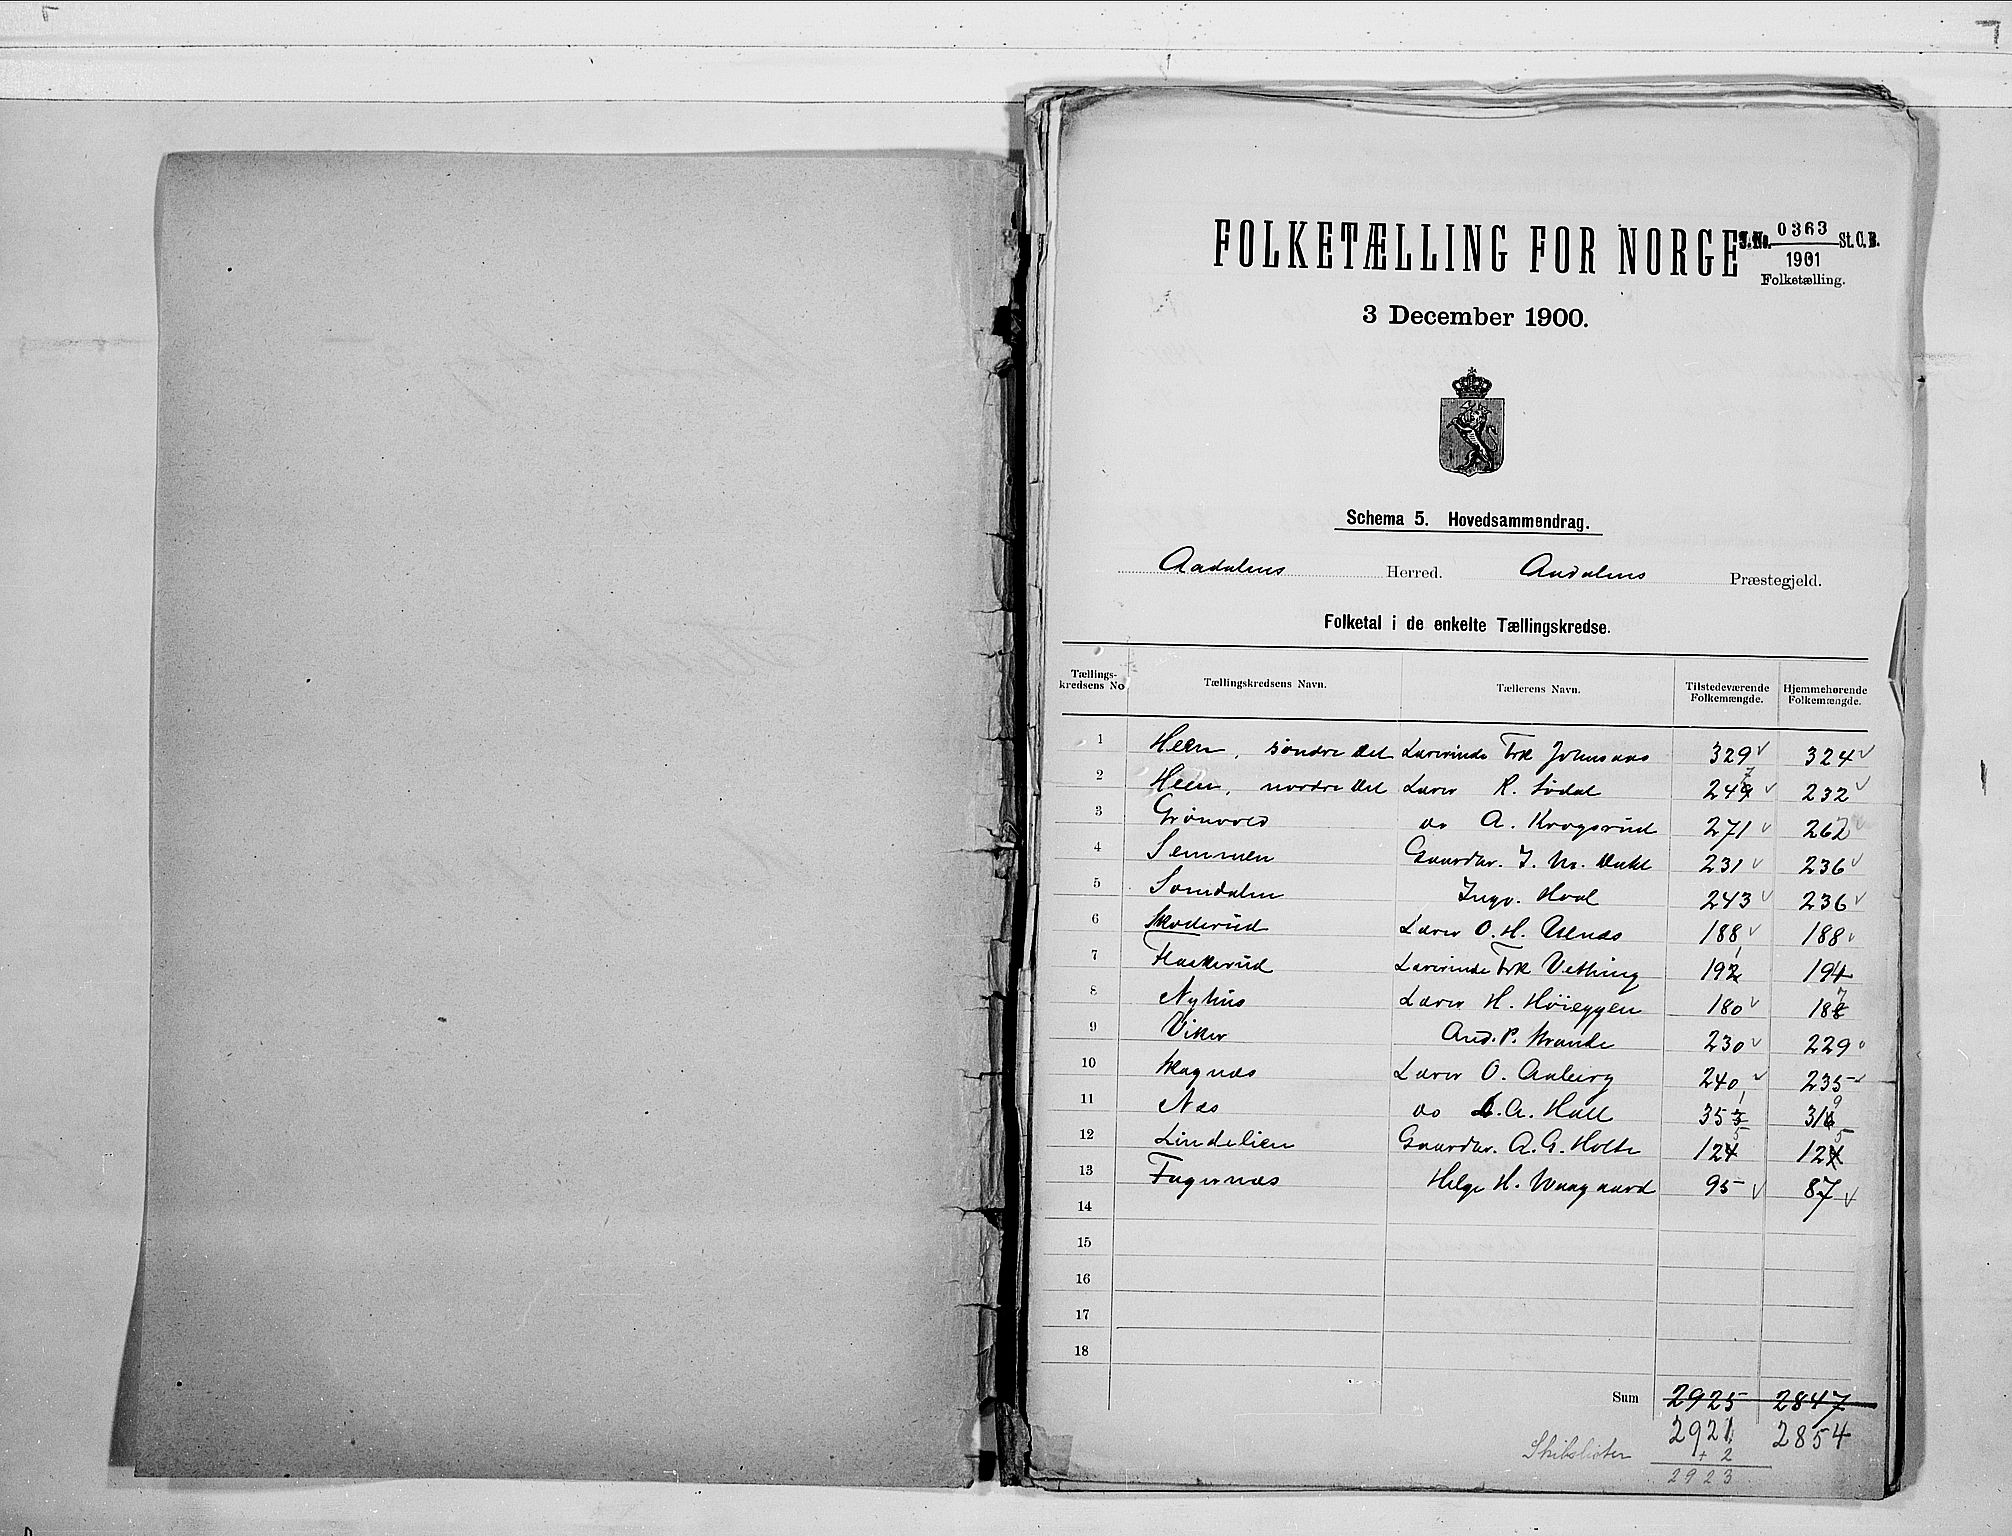 FOLKETÆLLING FOR NORGE
J. No. 0363 St. C. B.
1901
Folketælling.
3 December 1900.
Schema 5. Hovedsammendrag.
Aadalens Herred. Aadalens Præstegjeld.
Folketal i de enkelte Tællingskredse.
Tællings-kredsens No Tællingskredsens Navn. Tællerens Navn. Tilstedeværende Folkemængde. Hjemmehørende Folkemængde.
1 Heen, søndre del Lærerinde Frk Johnsaas 329 324
2 Heen, nordre del Lærer R. Sødal 247 232
3 Grønvold do A. Krogsrud 271 262
4 Semmen Gaardbr. 231 236
5 Somdalen Ingv. Hval 243 236
6 Skoderud Lærer O. H. 188 188
7 Haakerud Lærerinde Frk Vetting 191 194
8 Nyhus Lærer H. Høieggen 180 187
9 Viker And. P. Strande 230 229
10 Skagnæs Lærer O. Aaberg 240 235
11 Næs do A. Hall 351 319
12 Lindelien Gaardbr. A. G. Holte 125 125
13 Fagernæs Helge H. Waagaard 95 87
14
15
16
17
18
Sum 2925 2847
2921 2854
Skibslister + 2
2923